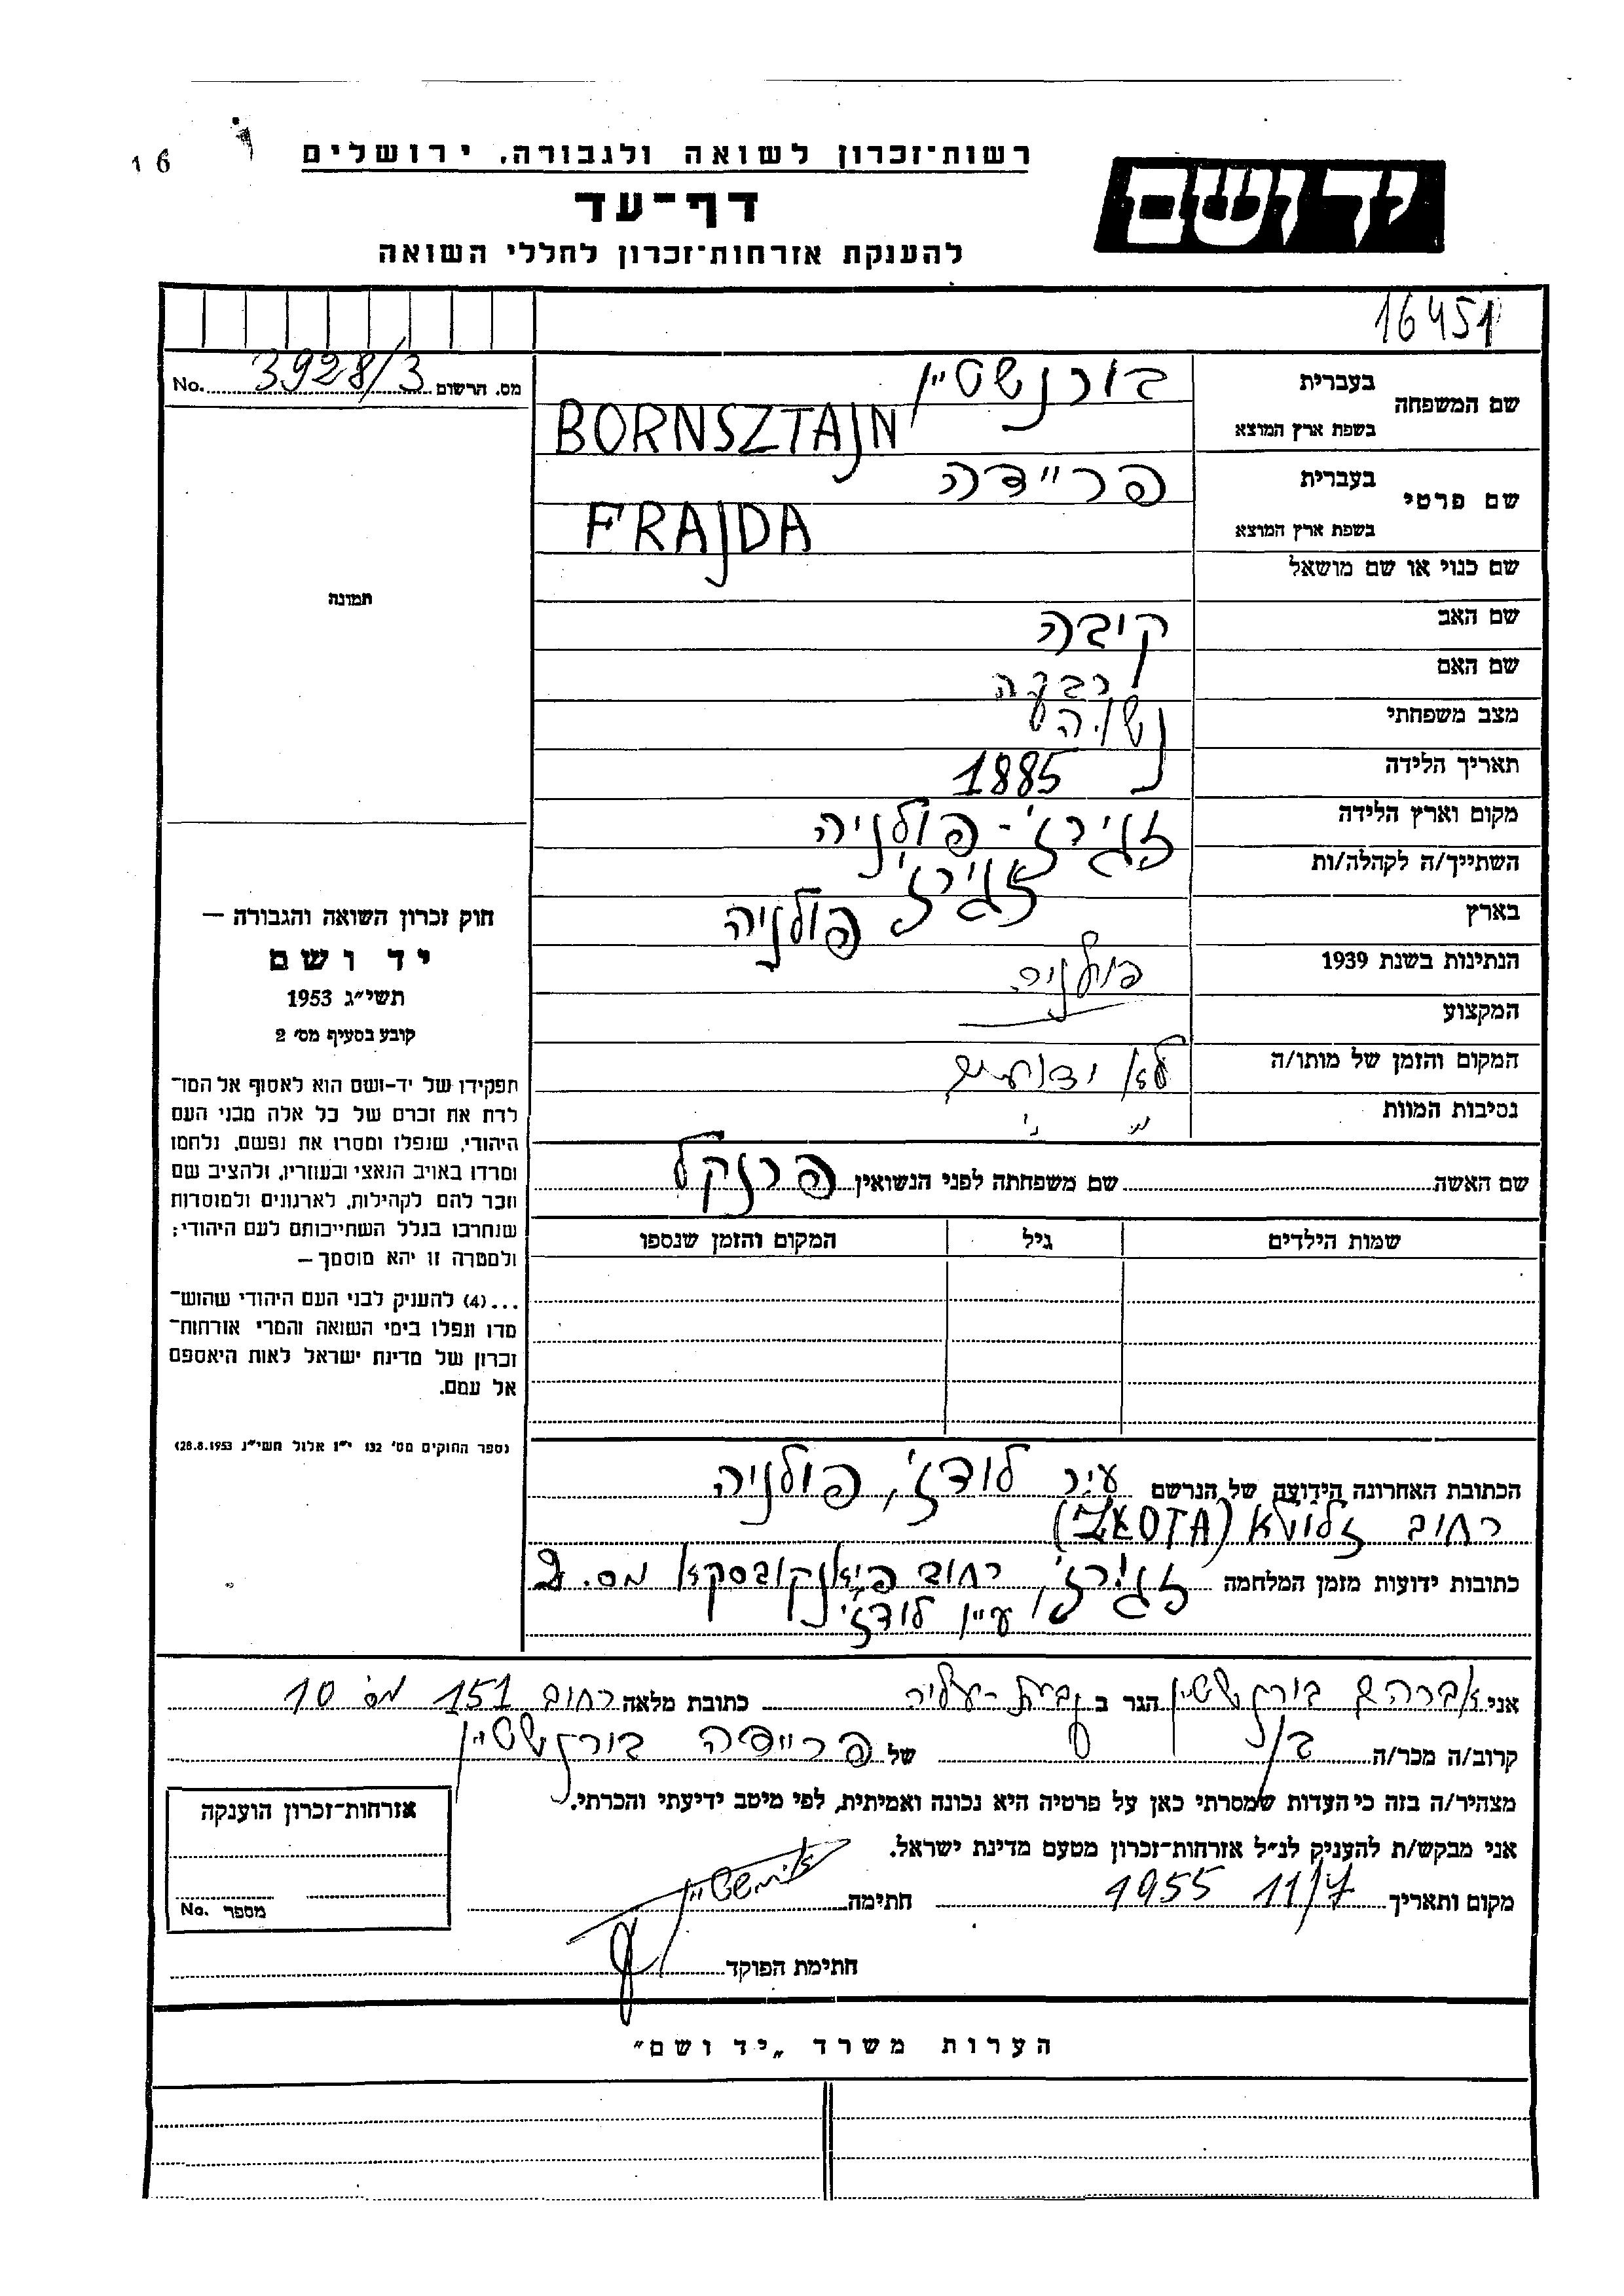 16
רשות־זכרון לשואה ולגבורה, ירושלים
יד ושם
דף־עד
להענקת אזרחות־זכרון לחללי השואה
16451
מס. הרשום 3928/3 No.
שם המשפחה
בעברית בורנשטיין
בשפת ארץ המוצא BORNSZTAJN
שם פרטי
בעברית פריידה
בשפת ארץ המוצא FRAJDA
שם כנוי או שם מושאל
שם האב קובה
שם האם
מצב משפחתי נשואה
תאריך הלידה 1885
מקום וארץ הלידה זגירז' - פולניה
השתייך/ה לקהלה/ות זגירז'
בארץ פולניה
הנתינות בשנת 1939 פולניה
המקצוע
המקום והזמן של מותו/ה לא ידועים
נסיבות המוות
שם האשה שם משפחתה לפני הנשואין פרנקל
שמות הילדים גיל המקום והזמן שנספו
הכתובת האחרונה הידועה של הנרשם עיר לודז', פולניה
רחוב
כתובות ידועות מזמן המלחמה זגירז', רחוב פיאנקובסקא מס. 2
עיין לודז'
תמונה
חוק זכרון השואה והגבורה —
יד ושם
תשי״ג 1953
קובע בסעיף מס׳ 2
תפקידו של יד-ושם הוא לאסוף אל המו־
לדת את זכרם של כל אלה מבני העם
היהודי, שנפלו ומסרו את נפשם, נלחמו
ומרדו באויב הנאצי ובעוזריו, ולהציב שם
וזכר להם לקהילות, לארגונים ולמוסדות
שנחרבו בגלל השתייכותם לעם היהודי;
ולמטרה זו יהא מוסמך —
...(4) להעניק לבני העם היהודי שהוש־
מדו ונפלו בימי השואה והמרי אזרחות־
זכרון של מדינת ישראל לאות היאספם
אל עמם.
(ספר החוקים מס׳ 132 י״ז אלול תשי״ג 28.8.1953)
אני אברהם בורנשטיין הגר ב גבעת-עליה כתובת מלאה רחוב 151 מס' 10
קרוב/ה מכר/ה בן של פריידה בורנשטיין
מצהיר/ה בזה כי העדות שמסרתי כאן על פרטיה היא נכונה ואמיתית, לפי מיטב ידיעתי והכרתי.
אני מבקש/ת להעניק לנ״ל אזרחות־זכרון מטעם מדינת ישראל.
מקום ותאריך 11/7 1955 חתימה
חתימת הפוקד
אזרחות־זכרון הוענקה
מספר No.
הערות משרד „יד ושם״